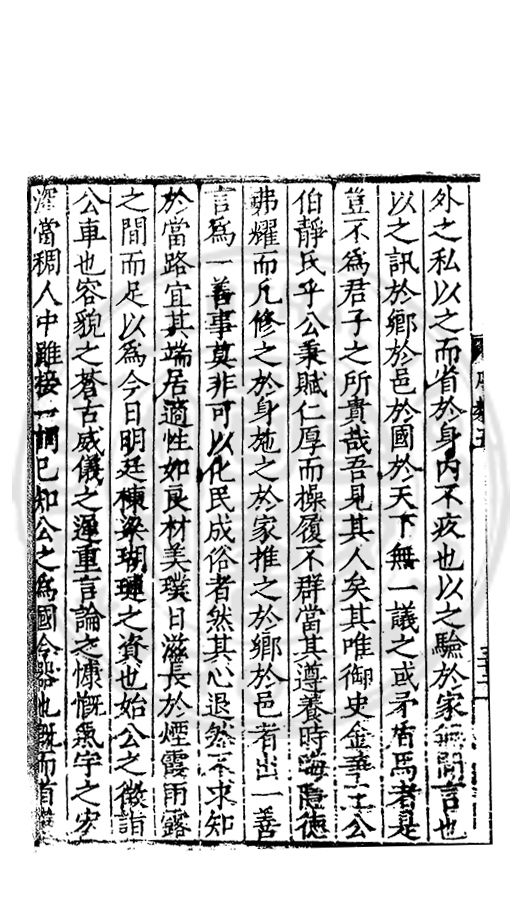 外之私以之而省於身内不疚也以之驗於家無間言也
以之訊於鄉於邑於國於天下無一議之或矛盾焉者是
豈不爲君子之所貴哉吾見其人矣其唯御史金華王公
伯靜氏乎公秉賦仁厚而操履不群當其遵養時晦隱德
弗耀而凡修之於身施之於家推之於鄉於邑者出一善
言爲一善事莫非可以化民成俗者然其心退然不求知
於當路宜其端居適性如良材美璞日滋長於煙霞雨露
之間而足以爲今日明廷棟梁瑚璉之資也始公之徵詣
公車也容貌之蒼古威儀之遲重言論之慷慨氣宇之宏
深當稠人中雖接一謂已知公之爲國令器也既而首